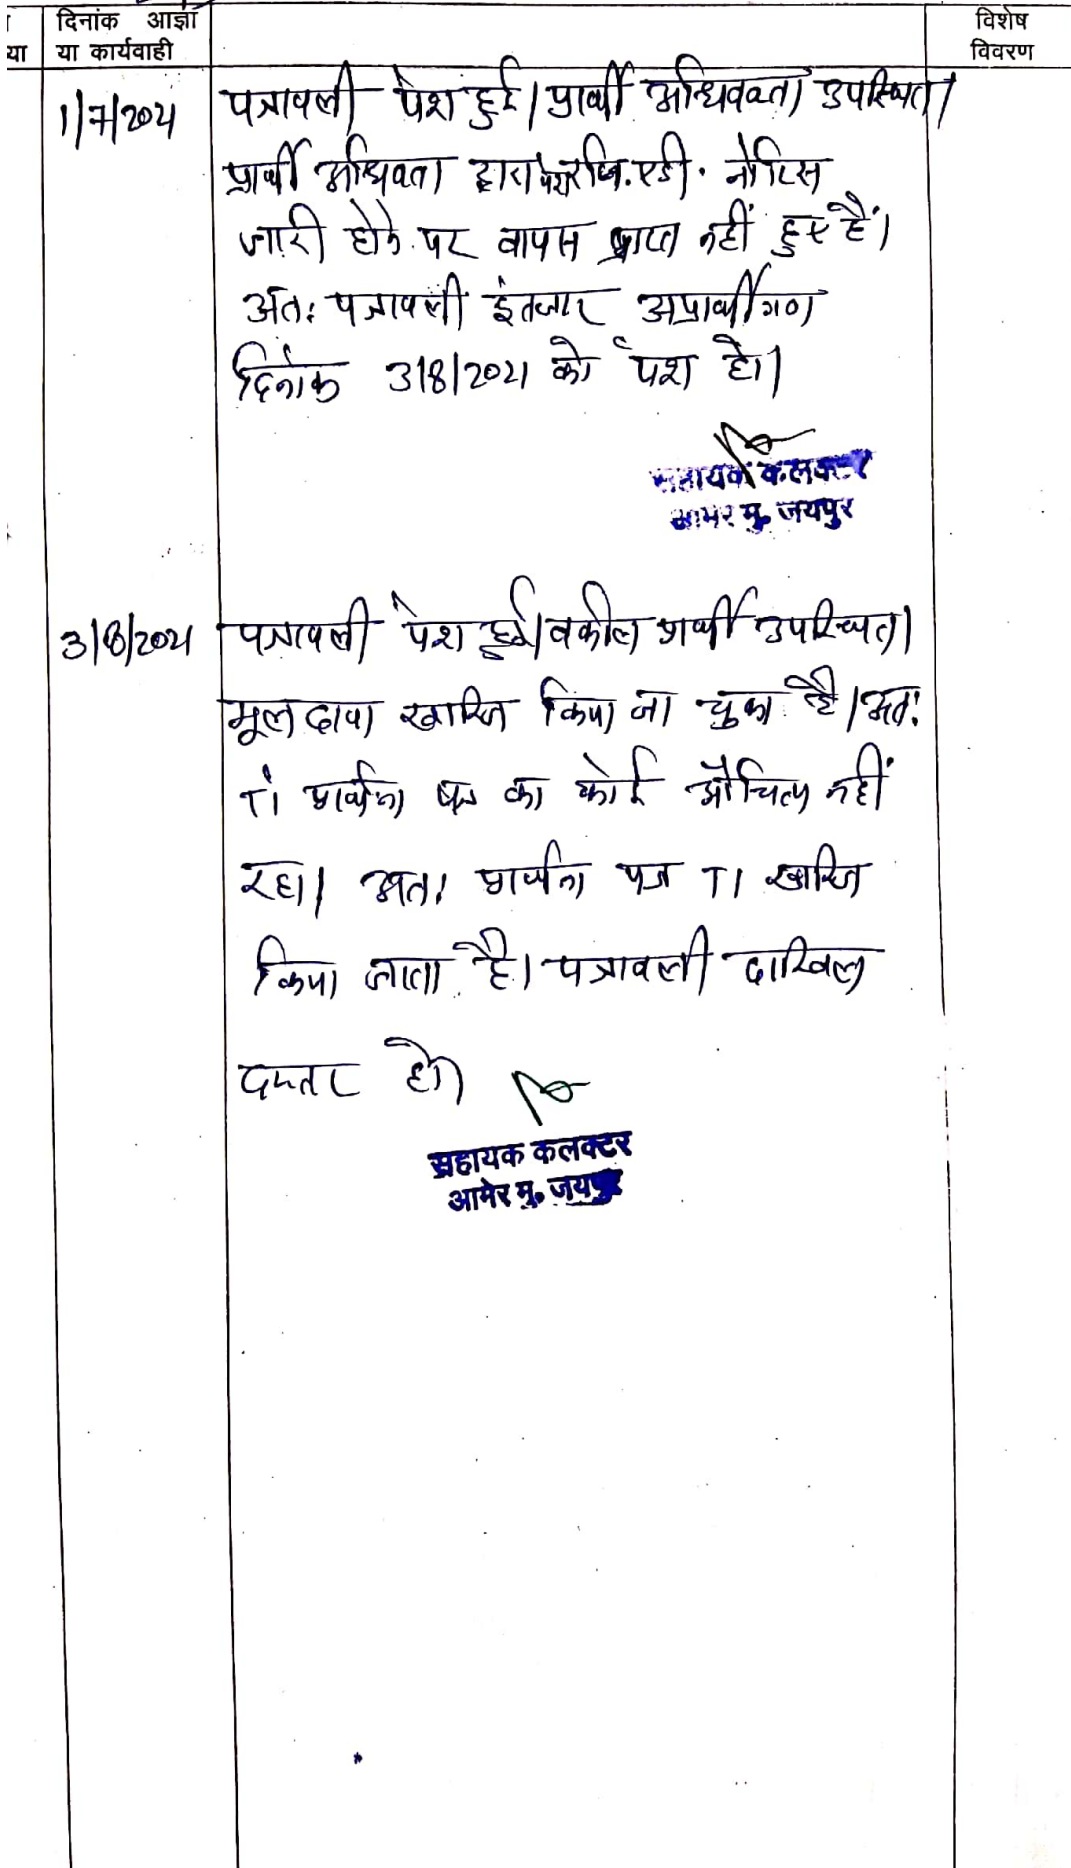 दिनांक आज्ञा
या कार्यवाही
विशेष
विवरण
या
1/7/2021
पत्रावली पेश हुई। प्रार्थी अधिवक्ता उपस्थित।
प्रार्थी अधिवक्ता द्वारा पेश रजि. एडी. नोटिस
जारी होने पर वापस प्राप्त नहीं हुए हैं।
अतः पत्रावली इंतजार अप्रार्थीगण
दिनांक 3/8/2021 को पेश हो।
सहायक कलक्टर
आमेर मु. जयपुर
3/8/2021
पत्रावली पेश हुई। वकील प्रार्थी उपस्थित।
मूल दावा खारिज किया जा चुका है। अतः
TI प्रार्थना पत्र का कोई औचित्य नहीं
रहा। अतः प्रार्थना पत्र TI खारिज
किया जाता है। पत्रावली दाखिल
दफ्तर हो।
सहायक कलक्टर
आमेर मु. जयपुर